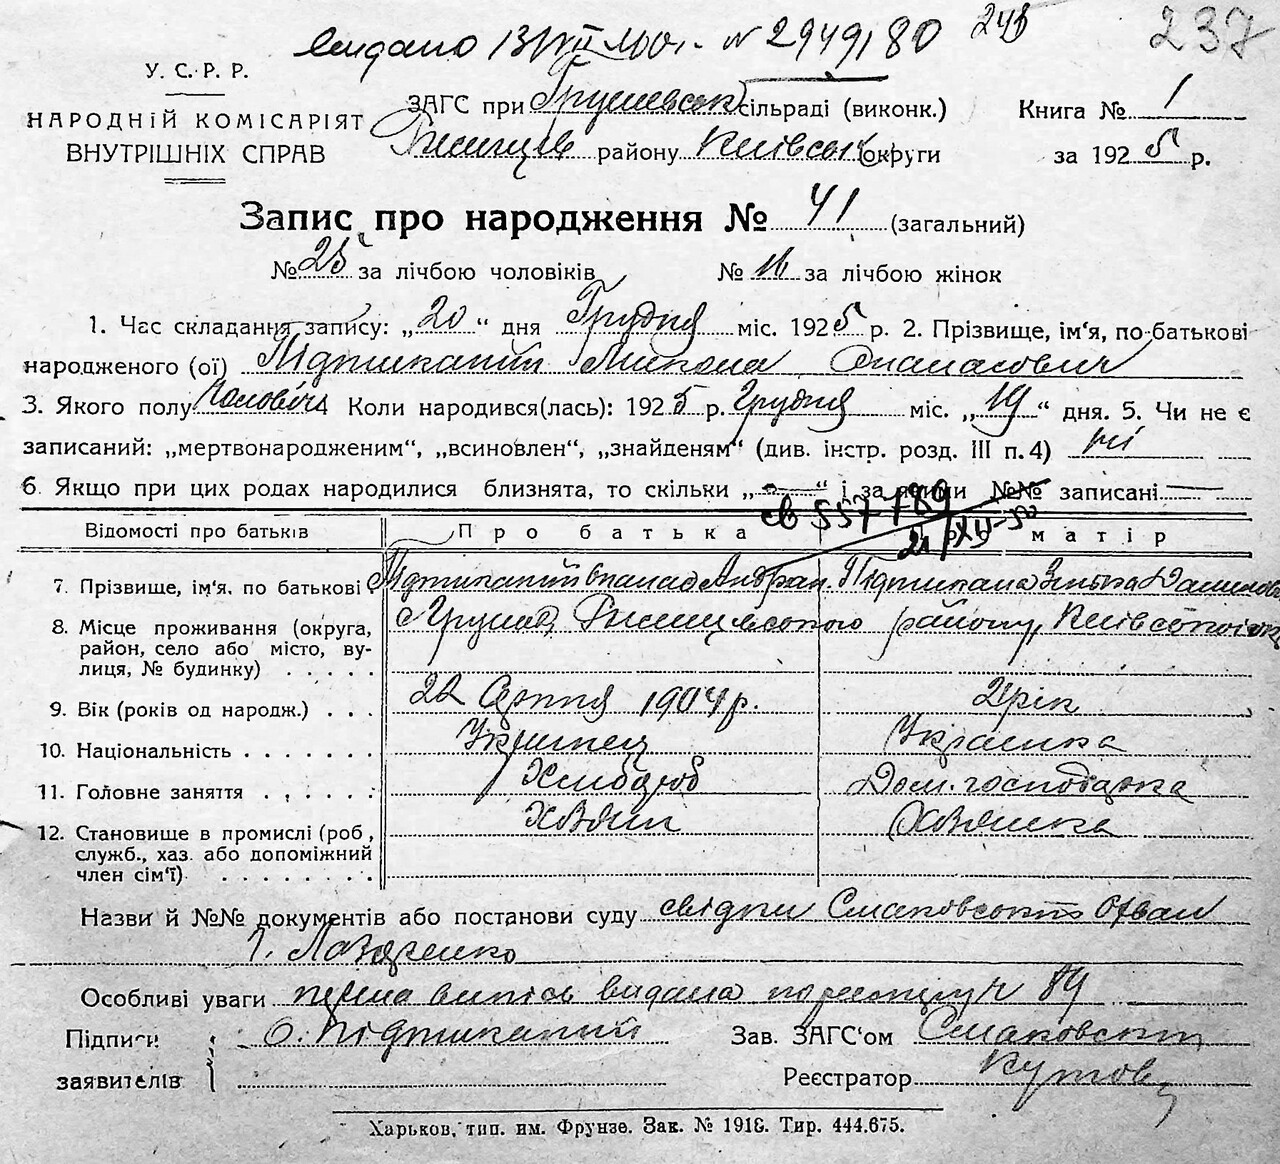 видано 2949/80 245 237
У. С. Р. Р.
НАРОДНІЙ КОМІСАРІЯТ
ВНУТРІШНІХ СПРАВ
ЗАГС при Грушевськ сільраді (виконк.)
Ржищів району Київськ округи
Книга № 1
за 1925 р.
Запис про народження № 41 (загальний)
№ 25 за лічбою чоловіків № 16 за лічбою жінок
1. Час складання запису: „20“ дня Грудня міс. 1925 р. 2. Прізвище, ім'я, по-батькові
народженого (ої) Підтиканий Микола Опанасович
3. Якого полу Чоловіч Коли народився(лась): 1925 р. Грудня міс. „19“ дня. 5. Чи не є
записаний: „мертвонародженим“, „всиновлен“, „знайденям“ (див. інстр. розд. III п. 4) ні
6. Якщо при цих родах народилися близнята, то скільки „—“ і за якими №№ записані —
св 557789
21/XII-50
Відомості про батьків Про батька матір
7. Прізвище, ім'я, по батькові Підтиканий Опанас Андрон. Підтикана Зінька
8. Місце проживання (округа, с. Грушів, Ржищівського району, Київської
район, село або місто, ву-
лиця, № будинку)
9. Вік (років од народж.) 22 Серпня 1904 р. рік
10. Національність Українец Українка
11. Головне заняття Хлібороб Дом. господарка
12. Становище в промислі (роб., Хазяїн Хазяйка
служб., хаз. або допоміжний
член сім'ї)
Назви й №№ документів або постанови суду свідки Смаковський
і. Лазаренко
Особливі уваги видана 89
Підписи О. Підтиканий Зав. ЗАГС'ом Смаковськ
заявителів Реєстратор
Харьков, тип. им. Фрунзе. Зак. № 1918. Тир. 444.675.